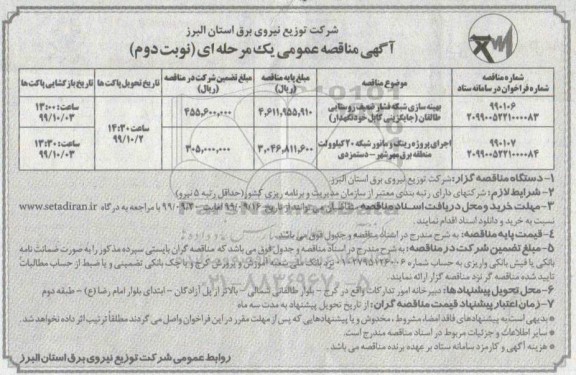 شرکت توزیع نیروی برق استان البرز
آگهی مناقصه عمومی یک مرحله ای (نوبت دوم)
شماره مناقصه شماره فراخوان در سامانه ستاد | موضوع مناقصه | مبلغ پایه مناقصه (ریال) | مبلغ تضمین شرکت در مناقصه (ریال) | تاریخ تحویل پاکت ها | تاریخ بازگشایی پاکت ها
۹۹۰۱۰۶ ۲۰۹۹۰۰۵۲۲۱۰۰۰۰۸۳ | بهینه سازی شبکه فشار ضعیف روستایی طالقان (جایگزینی کابل خودنگهدار) | ۴,۶۱۱,۹۵۵,۹۱۰ | ۴۵۵,۶۰۰,۰۰۰ | ساعت: ۱۴:۳۰ ۹۹/۱۰/۲ | ساعت: ۱۳:۰۰ ۹۹/۱۰/۰۳
۹۹۰۱۰۷ ۲۰۹۹۰۰۵۲۲۱۰۰۰۰۸۴ | اجرای پروژه رینگ و مانور شبکه ۲۰ کیلوولت منطقه برق مهرشهر – دستمزدی | ۳,۰۴۶,۸۱۱,۶۰۰ | ۳۰۵,۰۰۰,۰۰۰ | ساعت: ۱۳:۳۰ ۹۹/۱۰/۰۳
۱- دستگاه مناقصه گزار: شرکت توزیع نیروی برق استان البرز
۲- شرایط لازم: شرکتهای دارای رتبه بندی معتبر از سازمان مدیریت و برنامه ریزی کشور (حداقل رتبه ۵ نیرو)
۳- مهلت خرید و محل دریافت اسناد مناقصه: با مراجعه به درگاه www.setadiran.ir
نسبت به خرید و دانلود اسناد اقدام نمایند.
۴- قیمت پایه مناقصه: به شرح مندرج در اسناد مناقصه و جدول فوق می باشد.
۵- مبلغ تضمین شرکت در مناقصه: به شرح مندرج در اسناد مناقصه و جدول فوق می باشد که مناقصه گران بایستی سپرده مذکور را به صورت ضمانت نامه
بانکی یا فیش بانکی واریزی به حساب شماره نزد بانک ملی شعبه آموزش و پرورش کرج و یا چک بانکی تضمینی و یا ضبط از حساب مطالبات
تایید شده مناقصه گر نزد مناقصه گزار ارائه نمایند.
۶- محل تحویل پیشنهادها: دبیرخانه امور تدارکات واقع در کرج – بلوار طالقانی شمالی – بالاتر از پل آزادگان – ابتدای بلوار امام رضا (ع) – طبقه دوم
۷- زمان اعتبار پیشنهاد قیمت مناقصه گران: از تاریخ تحویل پیشنهاد به مدت سه ماه
* بدیهی است به پیشنهادهای فاقد امضاء، مشروط، مخدوش و یا پیشنهادهایی که پس از مهلت مقرر در این فراخوان واصل می گردند مطلقاً ترتیب اثر داده نخواهد شد.
* سایر اطلاعات و جزئیات مربوط در اسناد مناقصه مندرج است.
* هزینه آگهی و کارمزد سامانه ستاد بر عهده برنده مناقصه می باشد.
روابط عمومی شرکت توزیع نیروی برق استان البرز